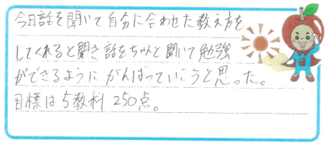 今日話を聞いて自分に合わせた教え方を
してくれると聞き話をちゃんと聞いて勉強
ができるようにがんばっていこうと思った。
目標は5教科250点。